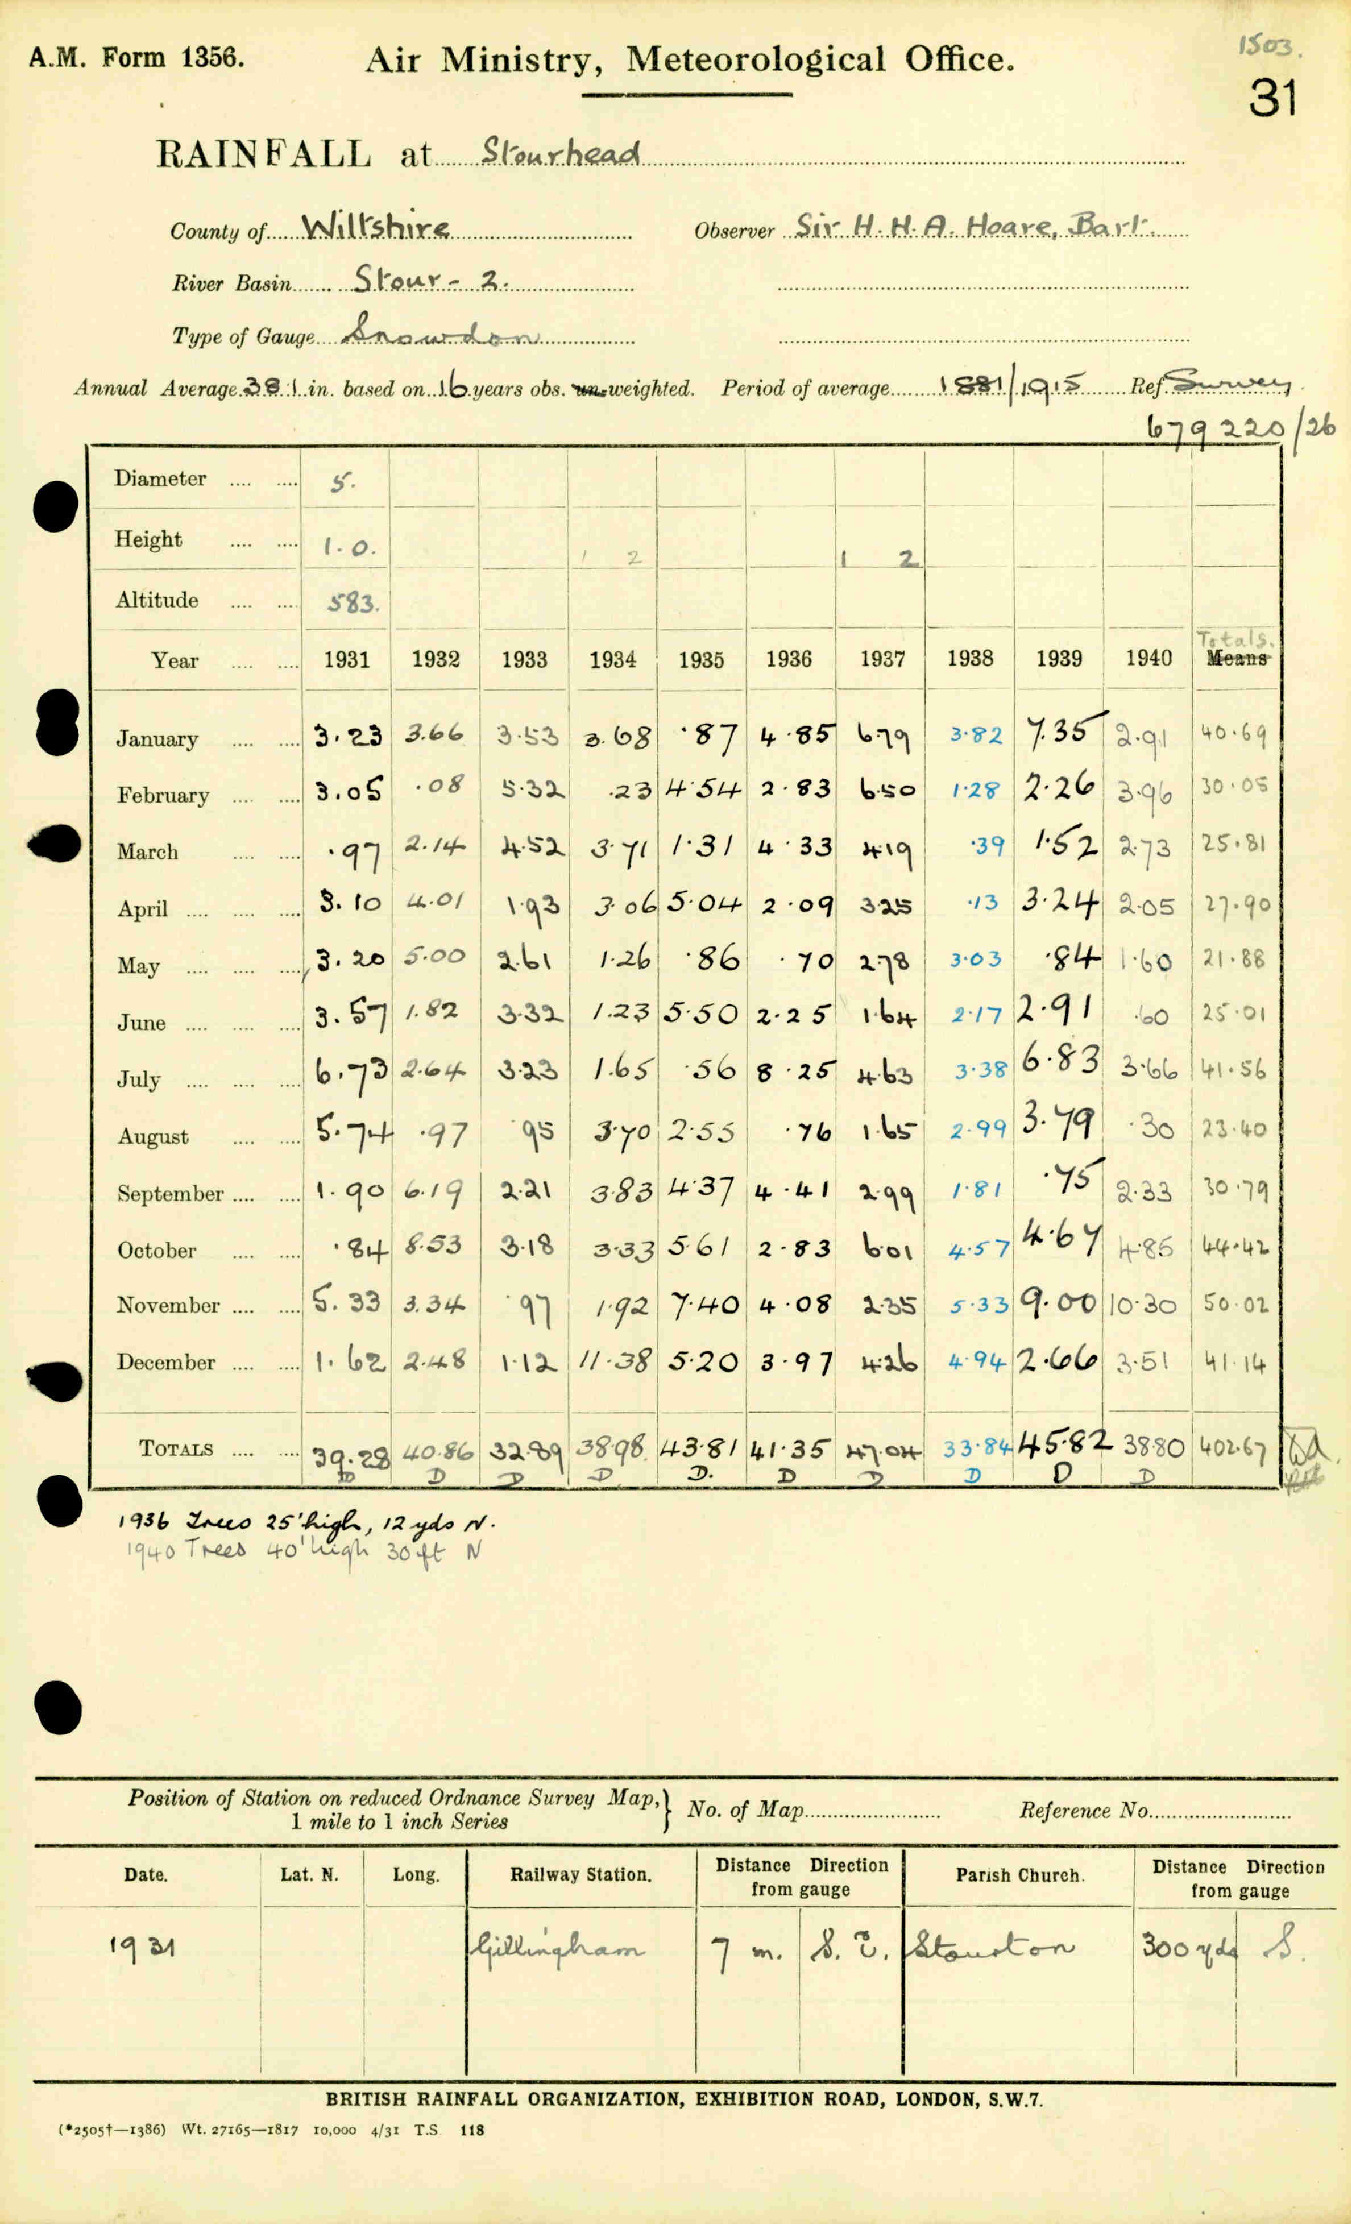 A.M. Form 1356. Air Ministry, Meteorological Office. 1503.
31
RAINFALL at Stourhead
County of Wiltshire Observer Sir H. H. A. Hoare, Bart.
River Basin Stour - 2.
Type of Gauge Snowdon
Annual Average 38.1 in. based on 16 years obs. un-weighted. Period of average 1881/1915 Ref. Survey
679220/26
Diameter .... .... 5.
Height .... .... 1.0. 1 2 1 2
Altitude .... .... 583.
Totals.
Year .... .... 1931 1932 1933 1934 1935 1936 1937 1938 1939 1940 Means
January .... .... 3.23 3.66 3.53 3.68 .87 4.85 6.79 3.82 7.35 2.91 40.69
February .... .... 3.05 .08 5.32 .23 4.54 2.83 6.50 1.28 2.26 3.96 30.05
March .... .... .97 2.14 4.52 3.71 1.31 4.33 4.19 .39 1.52 2.73 25.81
April .... .... .... 3.10 4.01 1.93 3.06 5.04 2.09 3.25 .13 3.24 2.05 27.90
May .... .... .... 3.20 5.00 2.61 1.26 .86 .70 2.78 3.03 .84 1.60 21.88
June .... .... .... 3.57 1.82 3.32 1.23 5.50 2.25 1.64 2.17 2.91 .60 25.01
July .... .... .... 6.73 2.64 3.23 1.65 .56 8.25 4.63 3.38 6.83 3.66 41.56
August .... .... 5.74 .97 .95 3.70 2.55 .76 1.65 2.99 3.79 .30 23.40
September .... .... 1.90 6.19 2.21 3.83 4.37 4.41 2.99 1.81 .75 2.33 30.79
October .... .... .84 8.53 3.18 3.33 5.61 2.83 6.01 4.57 4.67 4.85 44.42
November .... .... 5.33 3.34 .97 1.92 7.40 4.08 2.35 5.33 9.00 10.30 50.02
December .... .... 1.62 2.48 1.12 11.38 5.20 3.97 4.26 4.94 2.66 3.51 41.14
TOTALS .... .... 39.28 40.86 32.89 38.98 43.81 41.35 47.04 33.84 45.82 38.80 402.67
D D D D D. D D D D D
1936 Trees 25' high, 12 yds N.
1940 Trees 40' high 30 ft N
Position of Station on reduced Ordnance Survey Map,} No. of Map Reference No.
1 mile to 1 inch Series
Date. Lat. N. Long. Railway Station. Distance Direction from gauge Parish Church. Distance Direction from gauge
1931 Gillingham 7 m. S. E. Stourton 300 yds S.
BRITISH RAINFALL ORGANIZATION, EXHIBITION ROAD, LONDON, S.W.7.
(*2505†—1386) Wt. 27165—1817 10,000 4/31 T.S. 118